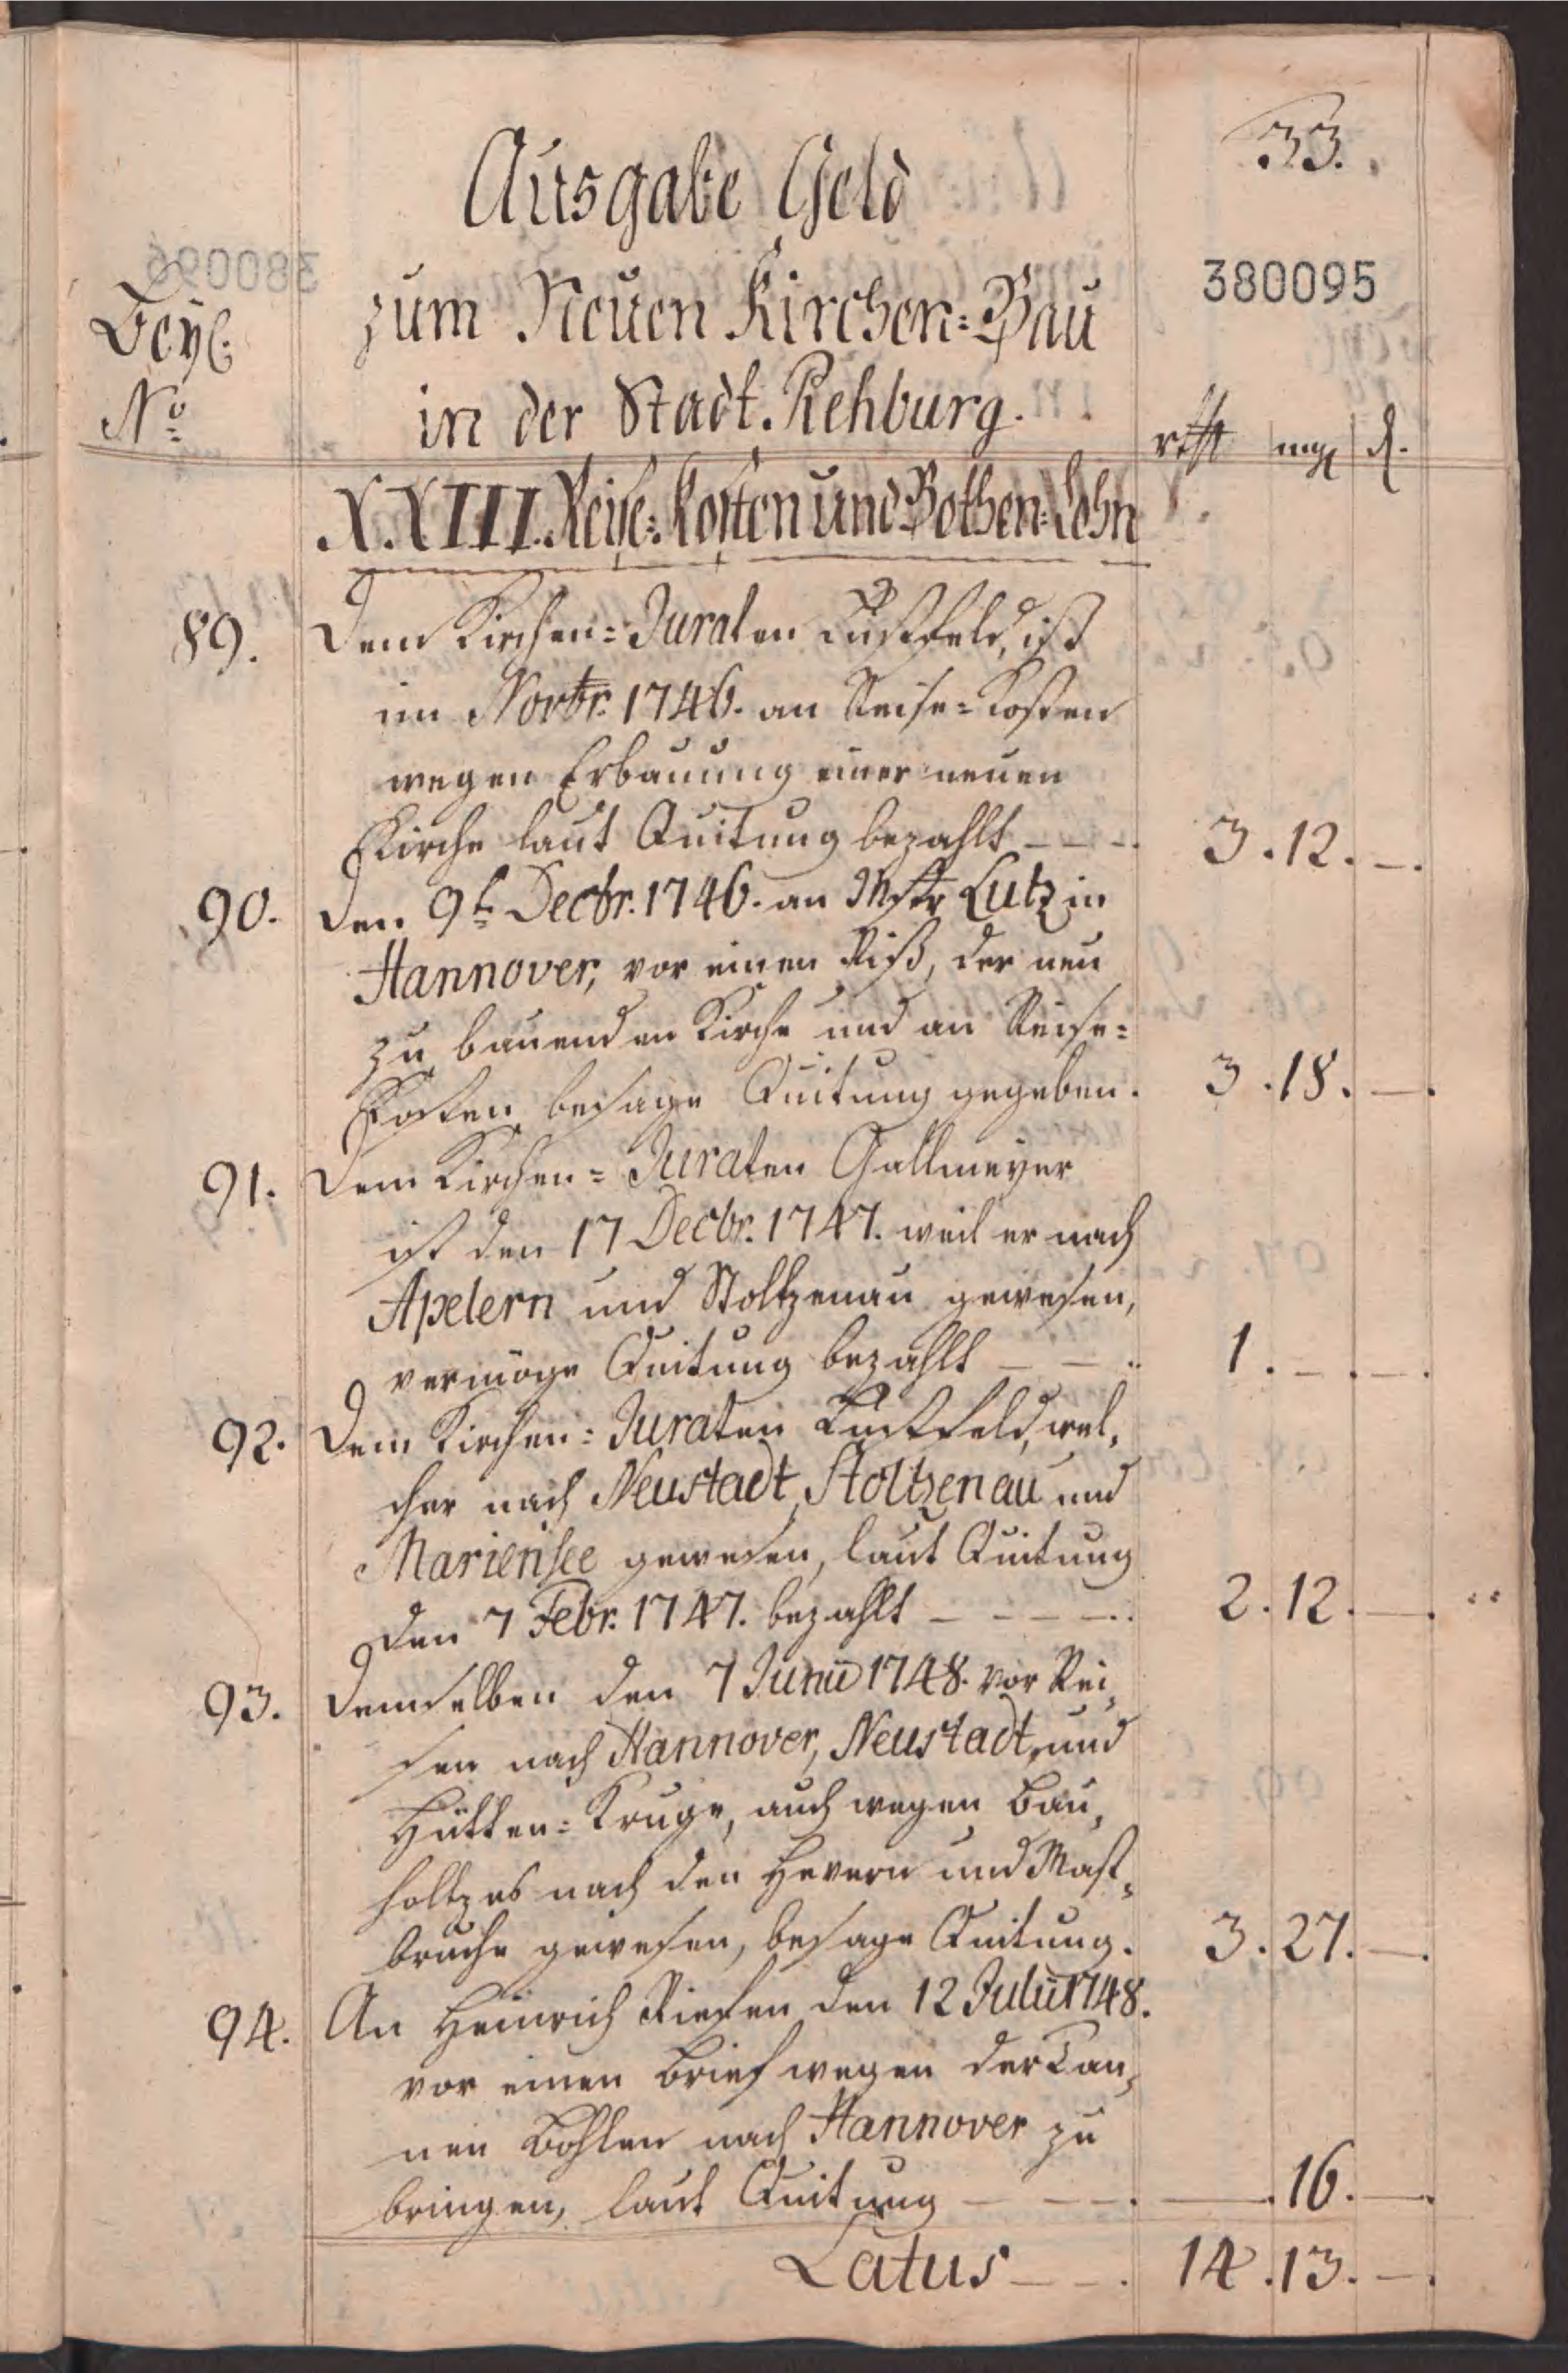 33.
Ausgabe Geld
380095
zum Neuen Kirchen=Bau
Beyl.
in der Stadt Rehburg.
No
rthl mg d.
XXIII. Reise=Kosten und Bothen=Lohn
89. Dem Kirchen=Juraten Lustfeld, ist
im Novbr. 1746. an Reise=Kosten
wegen Erbauung einer neuen
Kirche laut Quitung bezahlt - - - 3. 12. -.
90. Den 9t Decbr. 1746. an Mstr Lutz in
Hannover, vor einen Riß, der neu
zu bauenden Kirche und an Reise=
Kosten besage Quitung gegeben. 3. 18. -.
91. Dem Kirchen=Juraten Gallmeyer
ist den 17 Decbr. 1747. weil er nach
Apelern und Stoltzenau gewesen,
vermöge Quitung bezahlt - - 1. -. -.
92. Dem Kirchen=Juraten Lustfeld, wel,
cher nach Neustadt, Stoltzenau und
Mariensee gewesen, laut Quitung
den 7 Febr. 1747. bezahlt - - - - 2. 12. -.
93. Demselben den 7 Junii 1748. vor Rei,
sen nach Hannover, Neustadt, und
Hütten=Kruge, auch wegen Bau,
holtzes nach den Hevern und Mast,
bruche gewesen, besage Quitung. 3. 27. -.
94. An Heinrich Riesen den 12 Julii 1748.
vor einen Brief wegen der Tan,
nen Bohlen nach Hannover zu
bringen, laut Quitung - - - -. 16. -.
Latus - - 14. 13. -.